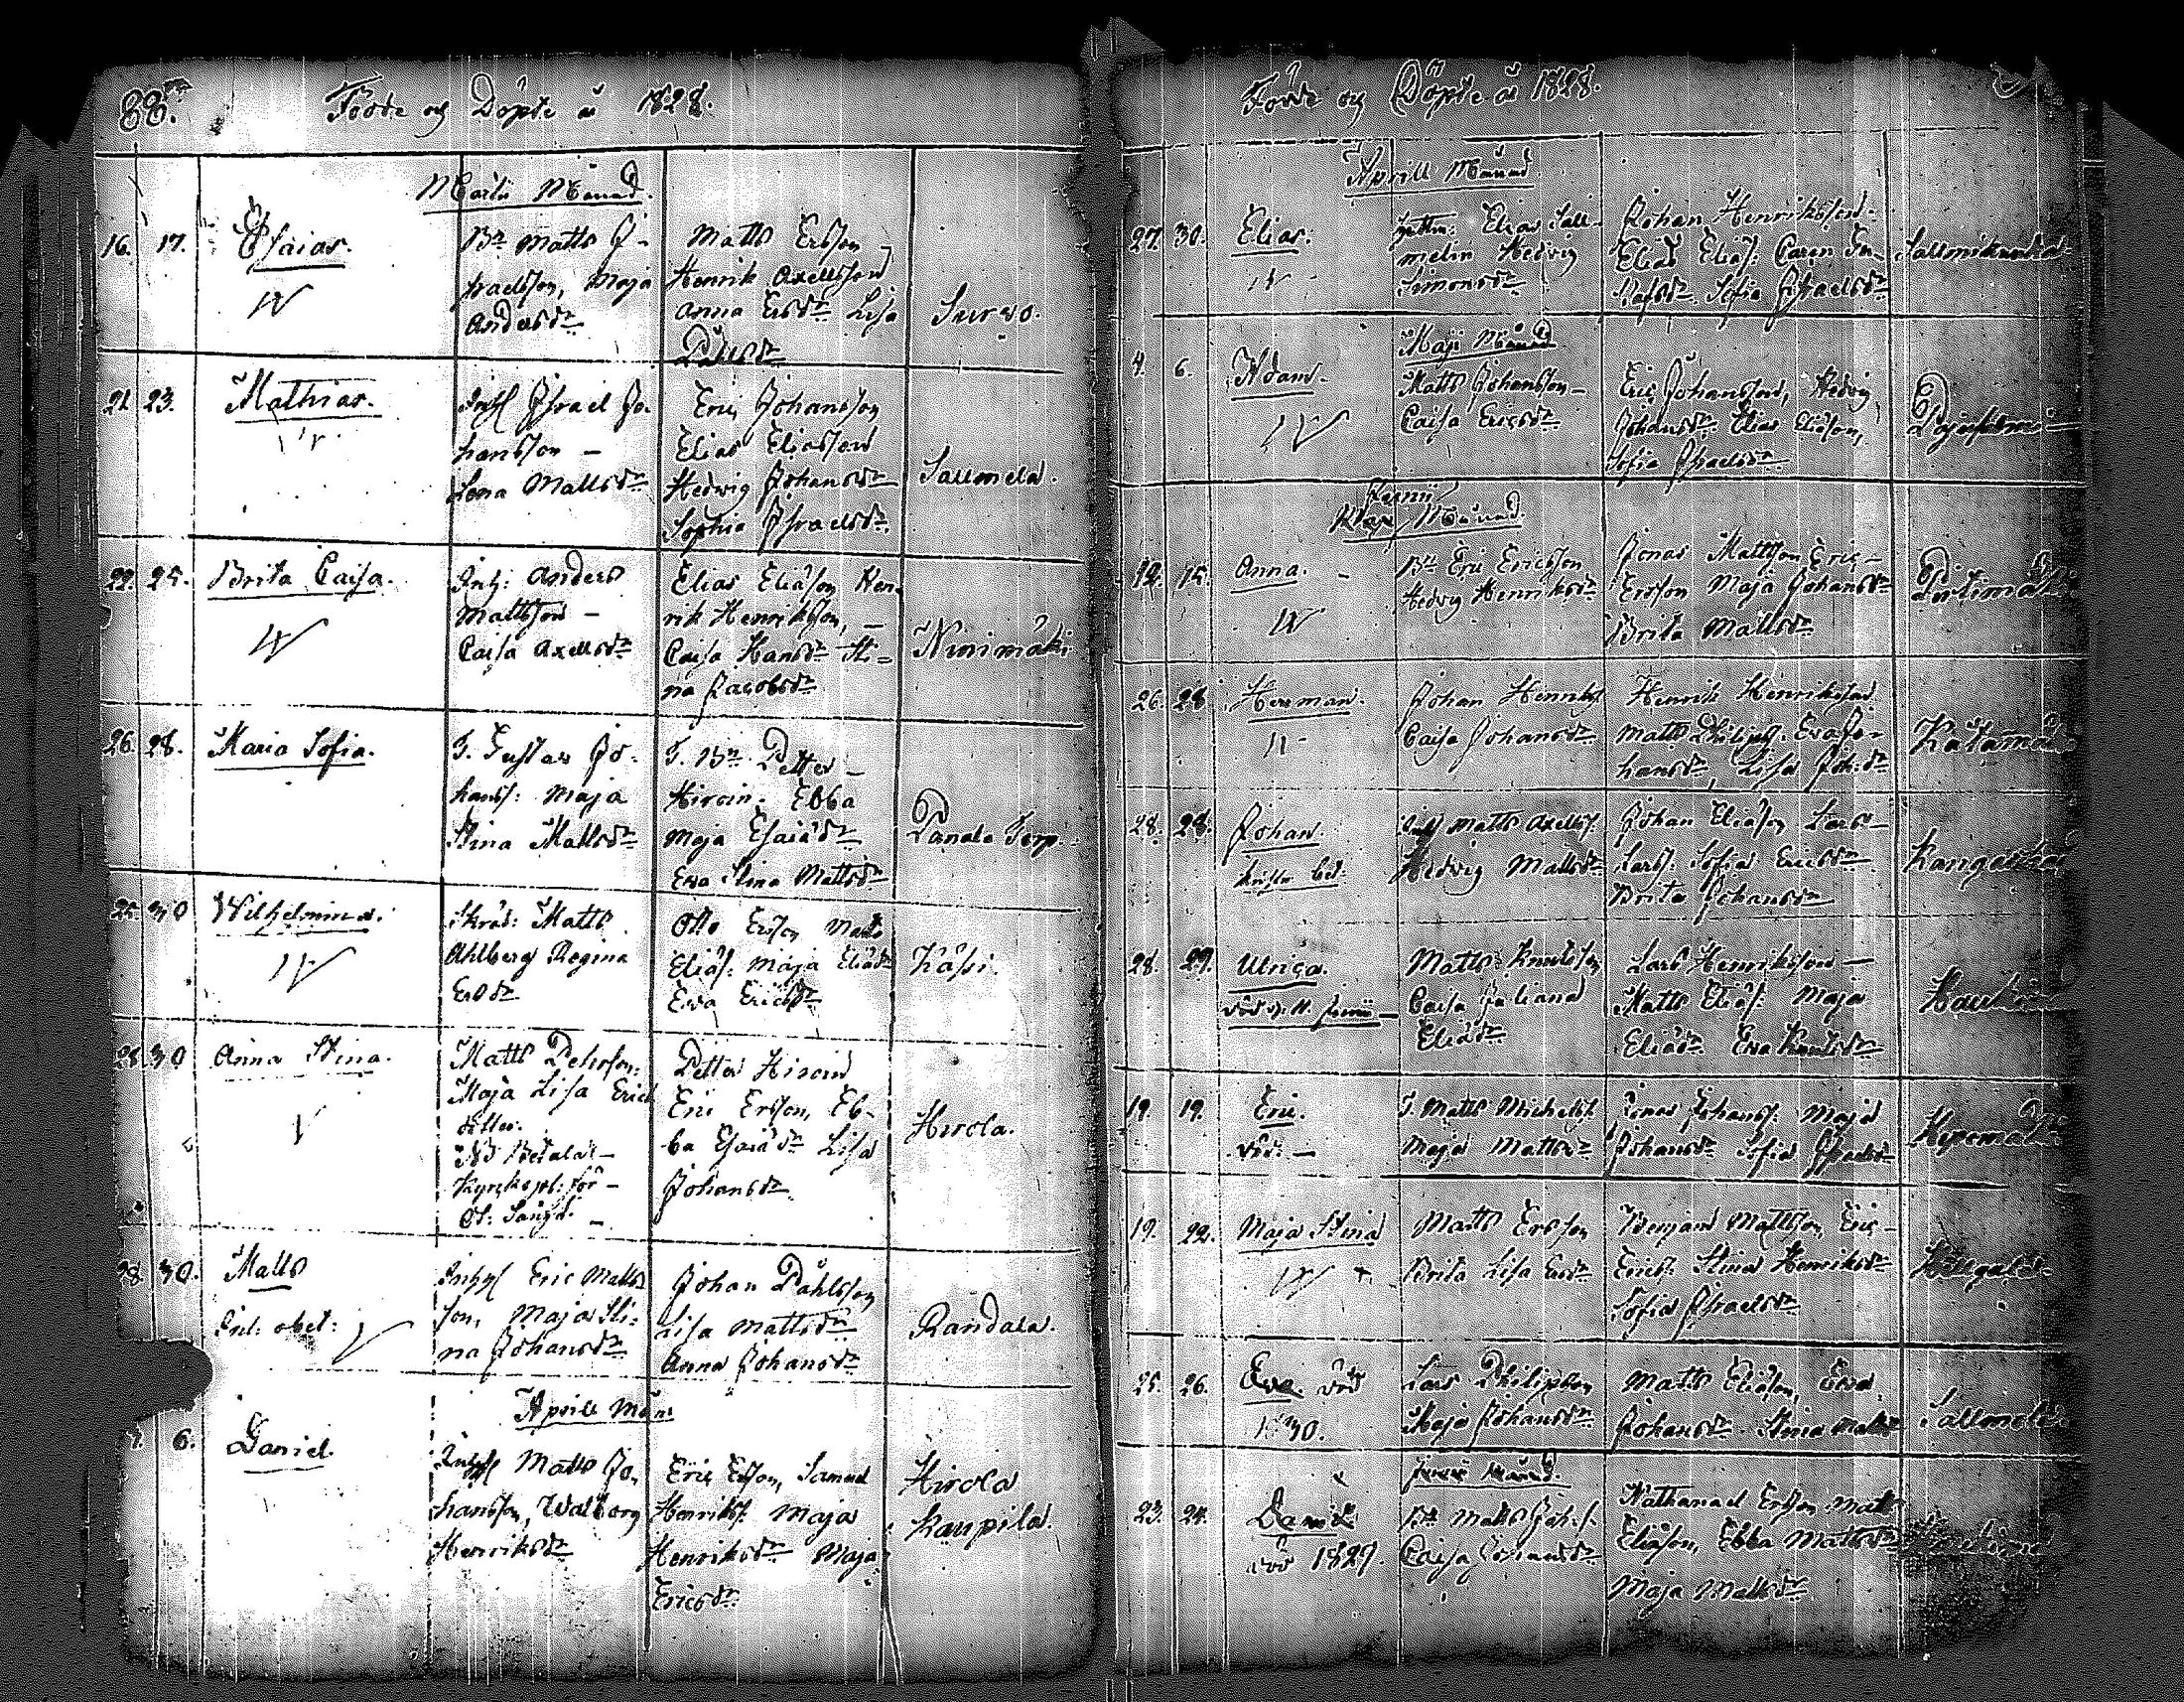 88.
Födde og Döpte å 1828.
Martii Månad.
16. 17. Esaias.
Bn Matts I-
sraelsson, Maja
Andersdr
Matts Ersson
Henrik Axellsson
Anna Ersdr Lisa
Survo.
21. 23. Mathias.
Inhs Israel Jo-
hansson –
Lena Mattsdr
Eric Johansson
Elias Eliasson
Hedwig Johansdr
Sophia Israelsdr
Sallmela.
22. 25. Brita Caisa.
Inh: Anders
Mattsson –
Caisa Axellsdr
Elias Eliasson Hen-
rik Henriksson, –
Caisa Hansdr Sti-
na Jacobsdr
Ninimäki
26. 28. Maria Sofia.
T. Gustav Jo-
hanss: Maja
Stina Mattsdr
T. Bn Petter –
Hiroin. Ebba
Maja Esaiædr
Eva Stina Mattsdr
Panala Torp.
25. 30 Wilhelmina.
Skräd: Matts
Ahlberg Regina
Ersdr
Otto Ersson Matts
Eliass: Maja Eliædr
Eva Ericsdr
Käsi.
28. 30 Anna Stina.
Matts Pehrsson.
Maja Lisa Erics
dotter.
Petter Hiroin
Eric Ersson, Eb-
ba Esaiædr Lisa
Johansdr
Hirola.
28. 30. Matts
Inhys Eric Matts
son, Maja Sti-
na Johansdr
Johan Påhlsson
Lisa Mattsdr
Anna Johansdr
Randala.
Aprill Mån:
6. Daniel
Inhys Matts Jo-
hansson, Walborg
Henriksdr
Eric Ersson, Samuel
Henrikss. Maja
Henriksdr Maja
Ericsdr
Hirola
Kaupila.
Födde og Döpte å 1828.
Aprill Månad
27. 30. Elias.
Elias Sall-
melin Hedvig
Simonsdr
Johan Henriksson.
Elias Eliass: Caren
Sofia Israelsdr
Maji Månad
4. 6. Adam.
Matts Johansson –
Caisa Ericsdr
Eric Johansson, Hedvig
Johansdr Elias Eliasson,
Sofia Israelsdr
Junii
Maji Månad.
12. 15. Anna.
Bn Eric Ericsson
Hedvig Henriksdr
Jonas Mattsson Eric –
Ersson Maja Johansdr
Brita Mattsdr
26. 28 Herman.
Johan Henrikss
Caisa Johansdr
Henrik Henriksson
Matts Philips. Eva Jo-
hansdr, Lisa Joh:dr
28. 28. Johan.
Matts Axellss.
Hedvig Mattsdr
Johan Eliasson Lars –
Larss. Sofia Ericsdr
Brita Johansdr
28. 29. Ulrica.
Matts Knutsson
Caisa Juliana
Eliædr
Lars Henriksson –
Matts Eliass. Maja
Eliædr Eva Knutsdr
19. 19. Eric.
död: –
T. Matts Michelss.
Maja Mattsdr
Jonas Johanss. Maja
Johansdr Sofia Israelsdr
19. 22. Maja Stina
Matts Ersson
Brita Lisa Ersdr
Benjam Mattsson, Eric –
Ericss. Stina Henriksdr
Sofia Israelsdr
25. 26. Eva död
1830.
Lars Philipsson
Maja Johansdr
Matts Eliasson, Eva
Johansdr Stina Mattsdr
Sallmela
Junii Månad.
23. 24. Daniel
död 1829.
Bn Matts Joh:s.
Caisa Johansdr
Nathanael Ersson Matts
Eliasson, Ebba Mattsdr
Maja Mattsdr